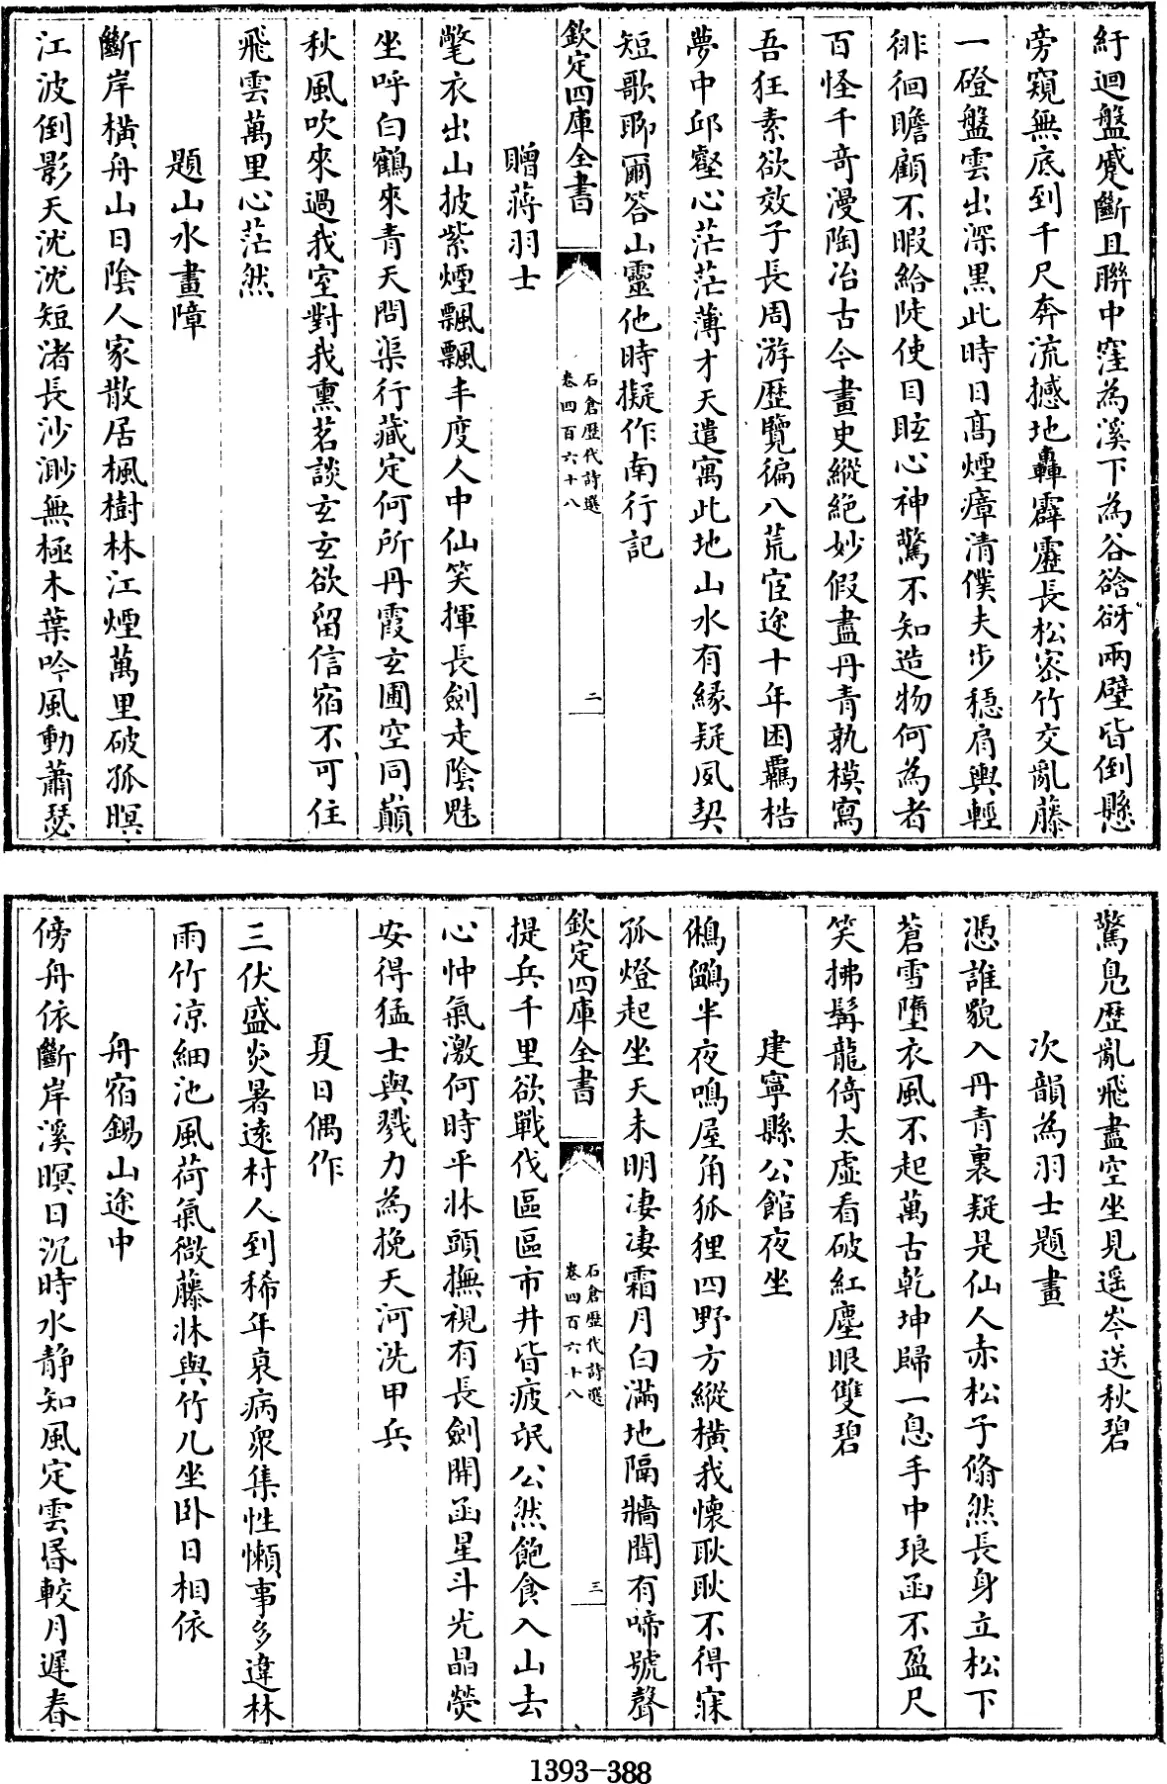 紆迴盤蹙斷且聯中窪為溪下為谷谽谺兩壁皆倒懸
旁窺無底到千尺奔流撼地轟霹靂長松密竹交亂藤
一磴盤雲出深黑此時日髙煙瘴清僕夫步穩肩輿輕
徘徊瞻顧不暇給陡使目眩心神驚不知造物何為者
百怪千竒漫陶冶古今畫史縱絶妙假盡丹青孰模寫
吾狂素欲效子長周游歴覽徧八荒宦途十年困羈梏
夢中邱壑心茫茫薄才天遣寓此地山水有縁疑夙契
短歌聊爾答山靈他時擬作南行記
欽定四庫全書
石倉歴代詩選
卷四百六十八
二
贈蔣羽士
氅衣出山披紫煙飄飄丰度人中仙笑揮長劍走陰魅
坐呼白鶴來青天問渠行藏定何所丹霞玄圃空同巔
秋風吹來過我室對我熏茗談玄玄欲留信宿不可住
飛雲萬里心茫然
題山水畫障
斷岸橫舟山日陰人家散居楓樹林江煙萬里破孤暝
江波倒影天沈沈短渚長沙渺無極木葉吟風動蕭瑟
驚鳬歴亂飛盡空坐見遥岑送秋碧
次韻為羽士題畫
憑誰貌入丹青裏疑是仙人赤松子翛然長身立松下
蒼雪墮衣風不起萬古乾坤歸一息手中琅函不盈尺
笑拂髯龍倚太虛看破紅塵眼雙碧
建寧縣公館夜坐
鵂鶹半夜鳴屋角狐狸四野方縱橫我懷耿耿不得寐
孤燈起坐天未明凄凄霜月白滿地隔牆聞有啼號聲
欽定四庫全書
石倉歴代詩選
卷四百六十八
三
提兵千里欲戰伐區區市井皆疲氓公然飽食入山去
心忡氣激何時平牀頭撫視有長劍開函星斗光晶熒
安得猛士與戮力為挽天河洗甲兵
夏日偶作
三伏盛炎暑逺村人到稀年衰病衆集性懶事多違林
雨竹凉細池風荷氣微藤牀與竹几坐卧日相依
舟宿錫山途中
傍舟依斷岸溪暝日沉時水静知風定雲昏較月遲春
1393-388